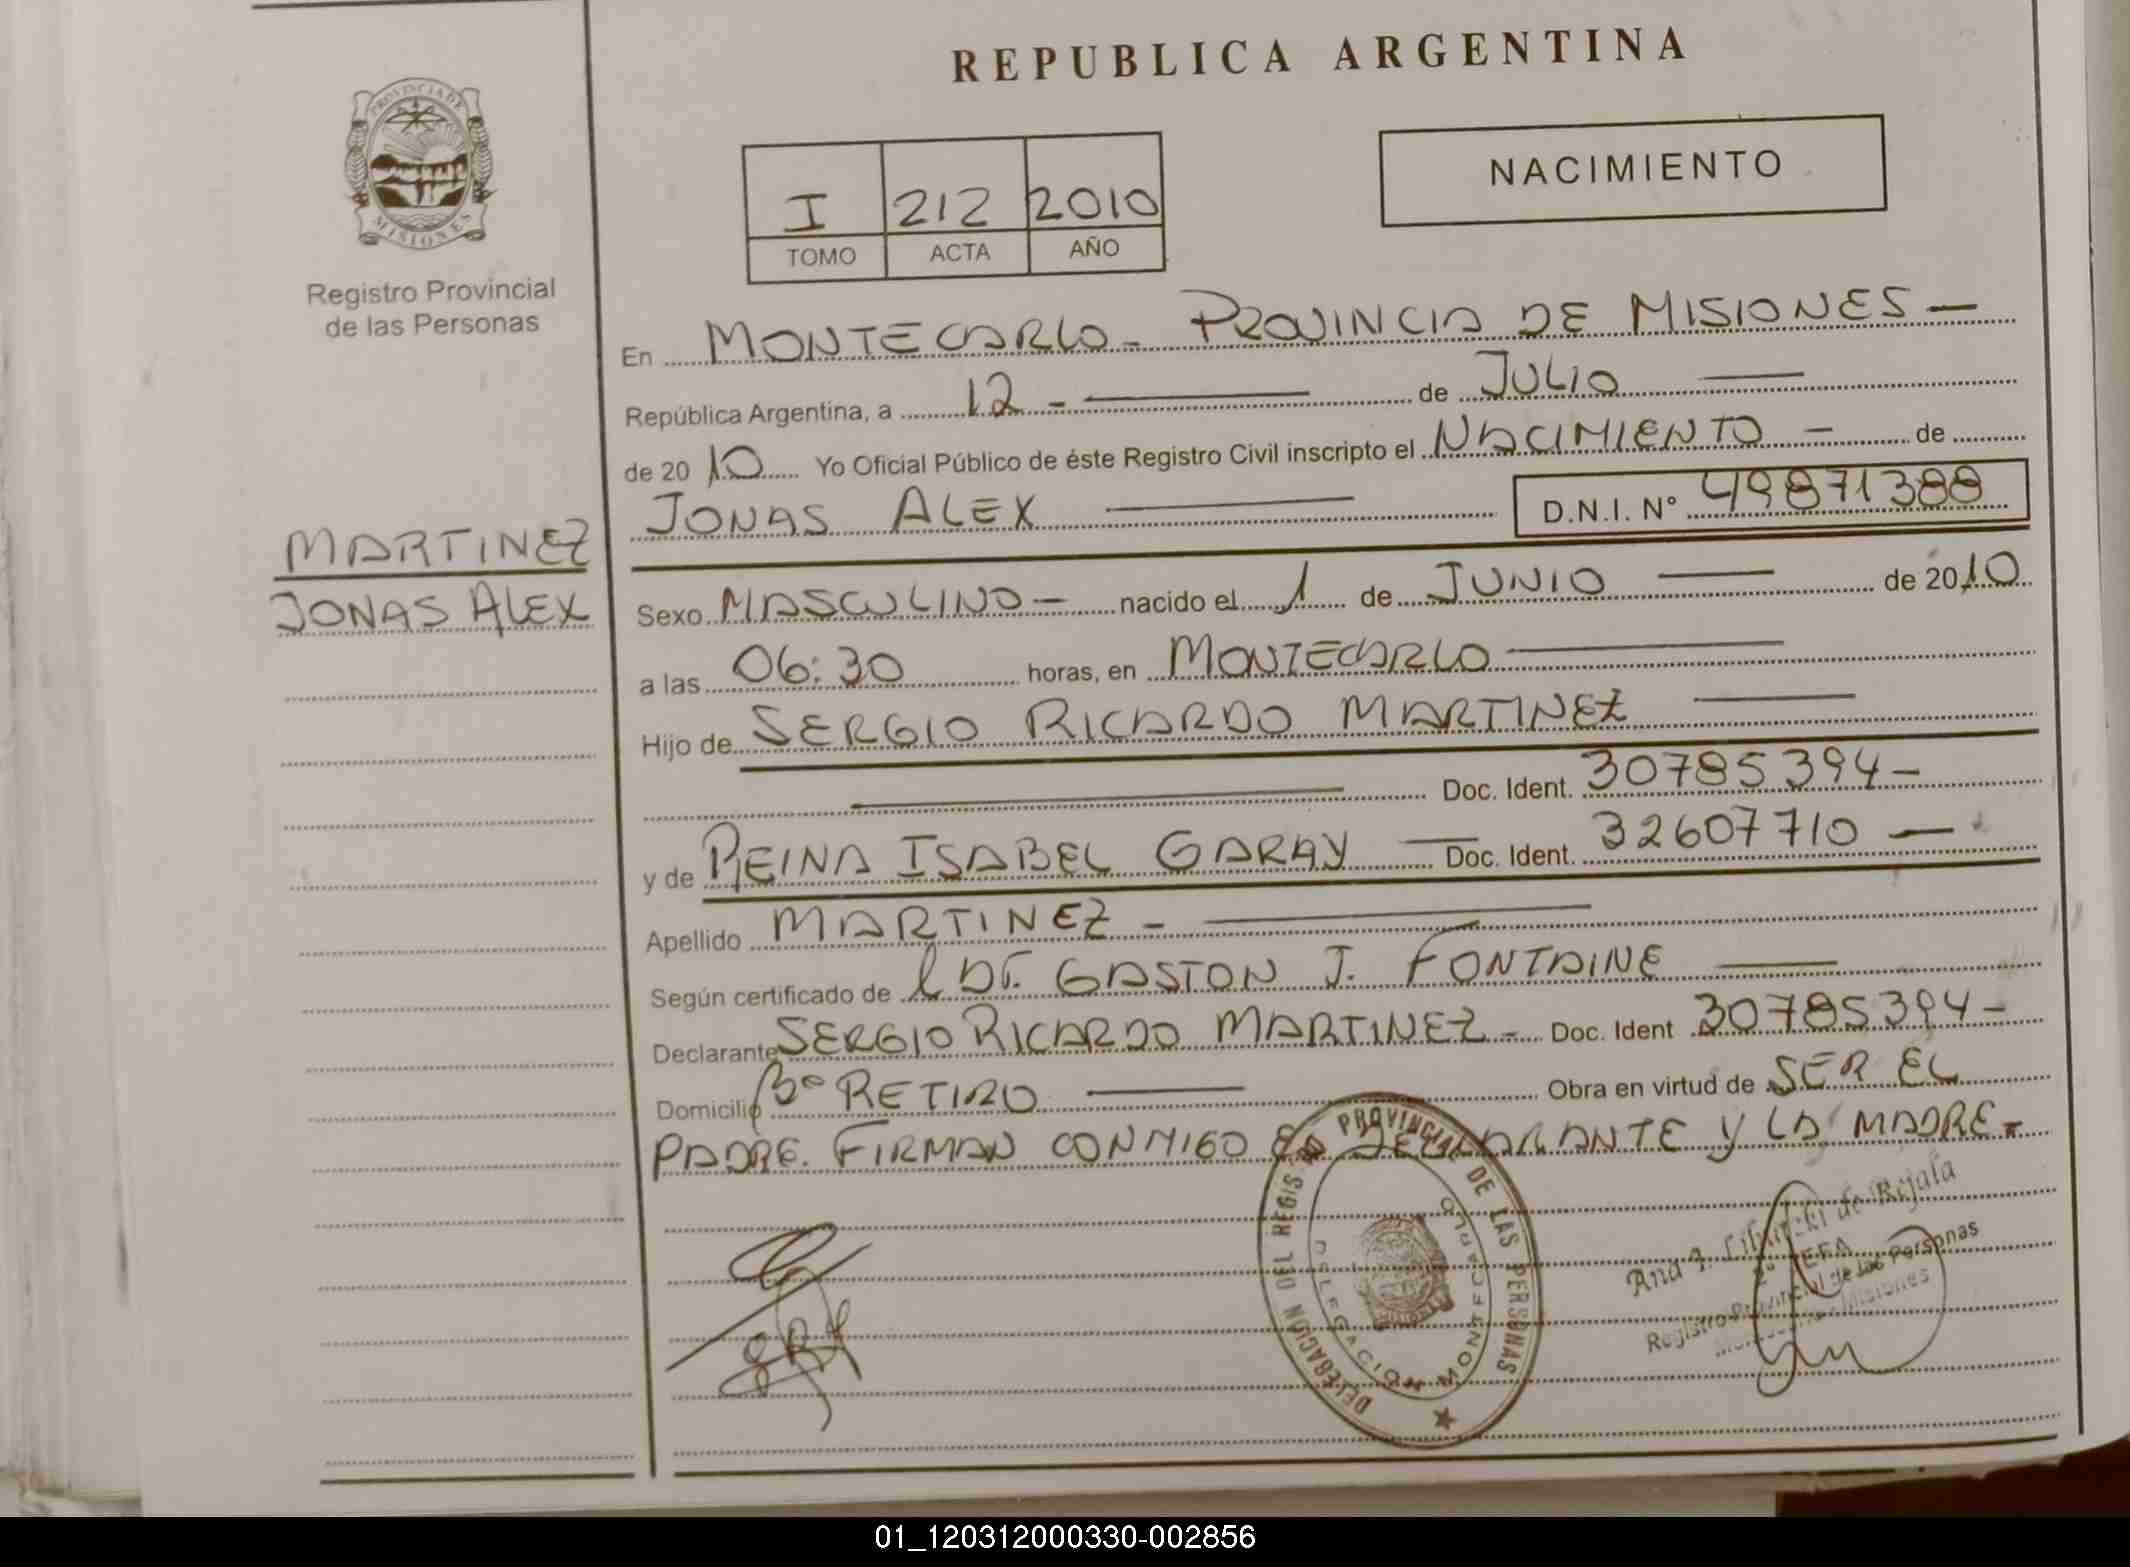 REPUBLICA ARGENTINA
PROVINCIA DE
MISIONES
Registro Provincial
de las Personas
NACIMIENTO
I 212 2010
TOMO ACTA AÑO
En MONTECARLO - PROVINCIA DE MISIONES -
República Argentina, a 12 - de JULIO
de 20 10 Yo Oficial Público de éste Registro Civil inscripto el NACIMIENTO - de
JONAS ALEX D.N.I. Nº 49871388
MARTINEZ
JONAS ALEX
Sexo MASCULINO - nacido el 1 de JUNIO de 20 10
a las 06:30 horas, en MONTECARLO
Hijo de SERGIO RICARDO MARTINEZ
Doc. Ident. 30785394-
y de REINA ISABEL GARAY Doc. Ident. 32607710 -
Apellido MARTINEZ -
Según certificado de GASTON J. FONTAINE
Declarante SERGIO RICARDO MARTINEZ - Doc. Ident 30785394-
Domicilio Bº RETIRO Obra en virtud de SER EL
PADRE. FIRMAN CONMIGO EL DECLARANTE Y LA MADRE -
DELEGACION DEL REGISTRO PROVINCIAL DE LAS PERSONAS
DELEGACION MONTECARLO
Ana de Rejala
JEFA
Registro Provincial de las Personas
Misiones
01_120312000330-002856